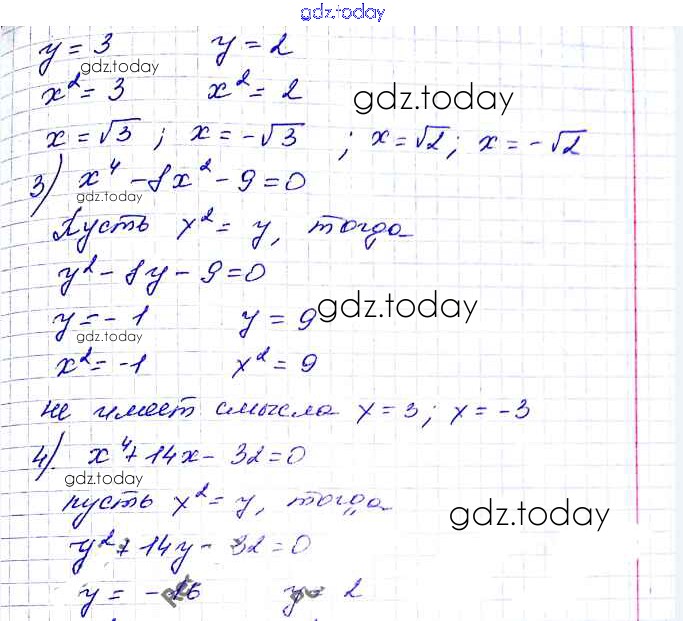 gdz.today
y = 3 y = 2
gdz.today
x² = 3 x² = 2
gdz.today
x = √3 ; x = -√3 ; x = √2 ; x = -√2
3) x⁴ - 8x² - 9 = 0
gdz.today
Пусть x² = y, тогда
y² - 8y - 9 = 0
y = - 1 y = 9
gdz.today
gdz.today
x² = -1 x² = 9
не имеет смысла x = 3; x = -3
4) x⁴ + 14x - 32 = 0
gdz.today
пусть x² = y, тогда
gdz.today
y² + 14y - 32 = 0
y = - 16 y = 2